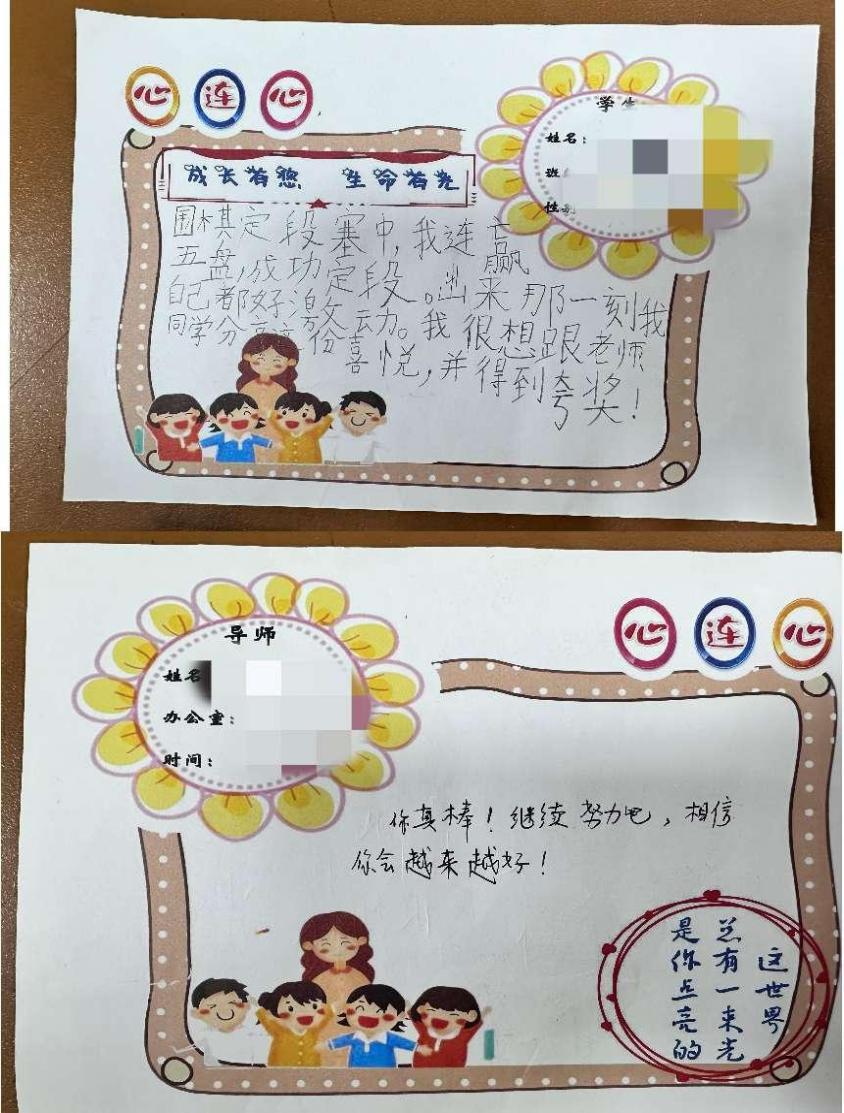 心连心
学生
姓名：
班
性别
成长有您 生命有光
围棋定段赛中，我连赢
五盘，成功定段。出来那一刻我
自己都好激动。我很想跟老师
同学分享这份喜悦，并得到夸奖！
心连心
导师
姓名
办公室：
时间：
你真棒！继续努力吧，相信
你会越来越好！
这世界
总有一束光
是你点亮的